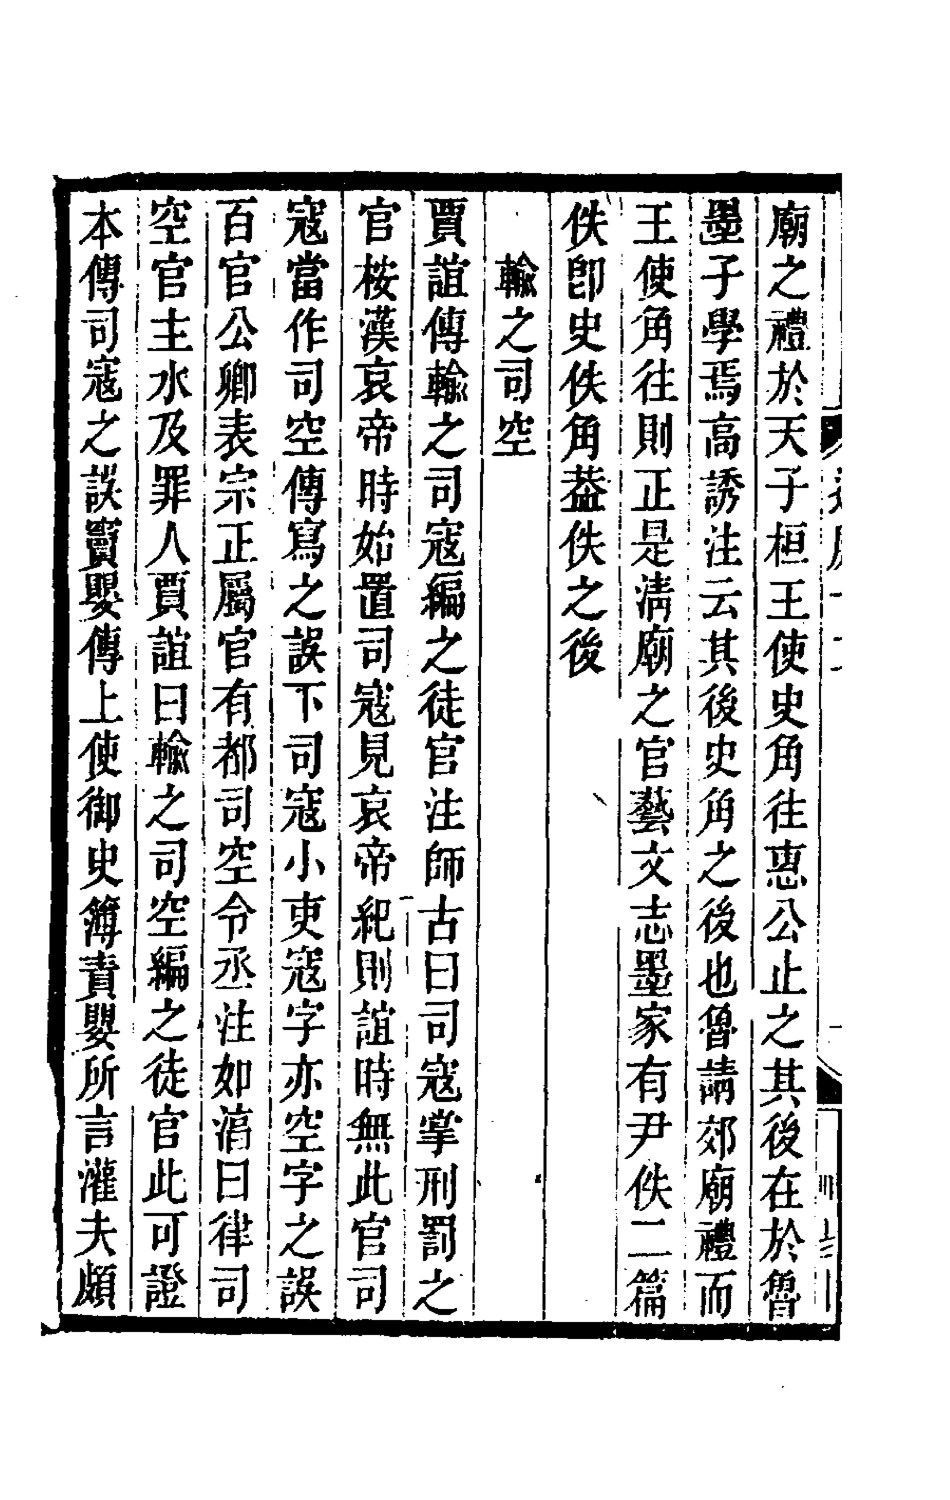 廟之禮於天子桓王使史角往惠公止之其後在於魯
墨子學焉高誘注云其後史角之後也魯請郊廟禮而
王使角往則正是淸廟之官藝文志墨家有尹佚二篇
佚卽史佚角葢佚之後
輸之司空
賈誼傳輸之司寇編之徒官注師古曰司寇掌刑罰之
官桉漢哀帝時始置司寇見哀帝紀則誼時無此官司
寇當作司空傳寫之誤下司寇小吏寇字亦空字之誤
百官公卿表宗正屬官有都司空令丞注如湻曰律司
空官主水及罪人賈誼曰輸之司空編之徒官此可證
本傳司寇之誤竇嬰傳上使御史簿責嬰所言灌夫頗